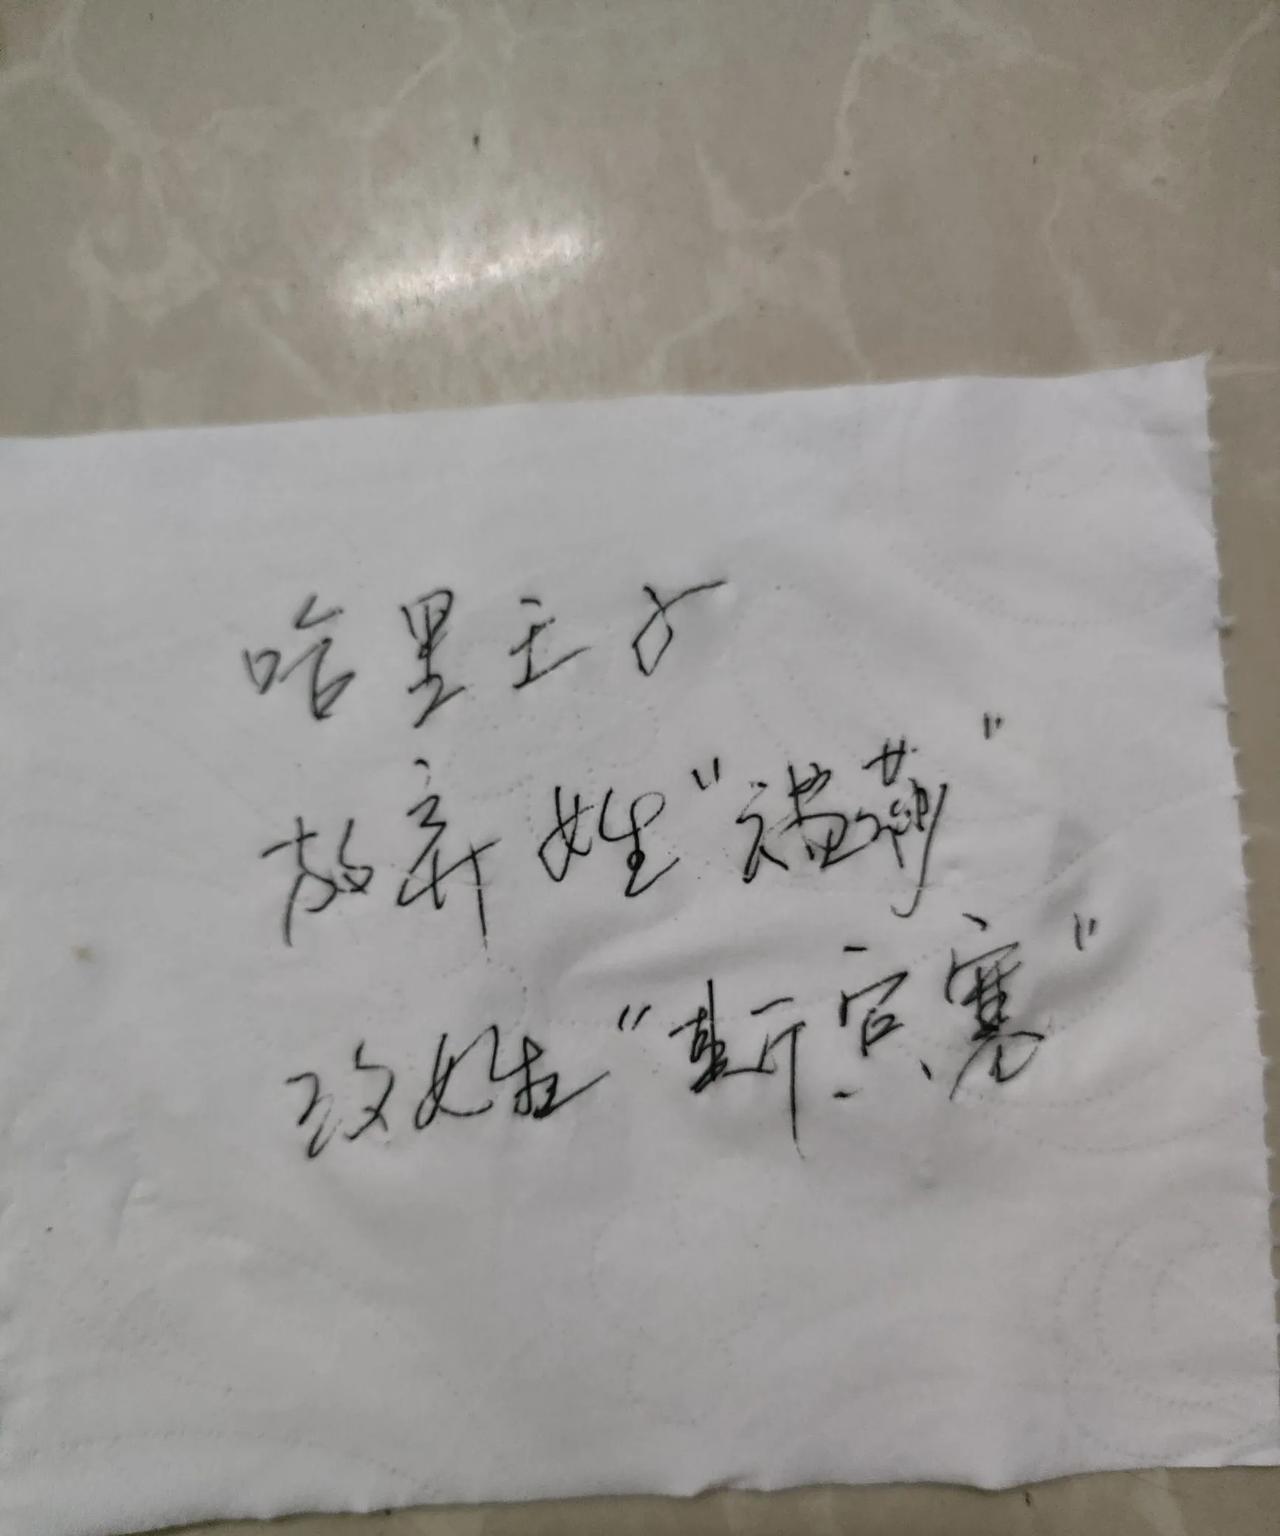 哈里王子
放弃姓“温莎”
改姓“斯宾塞”